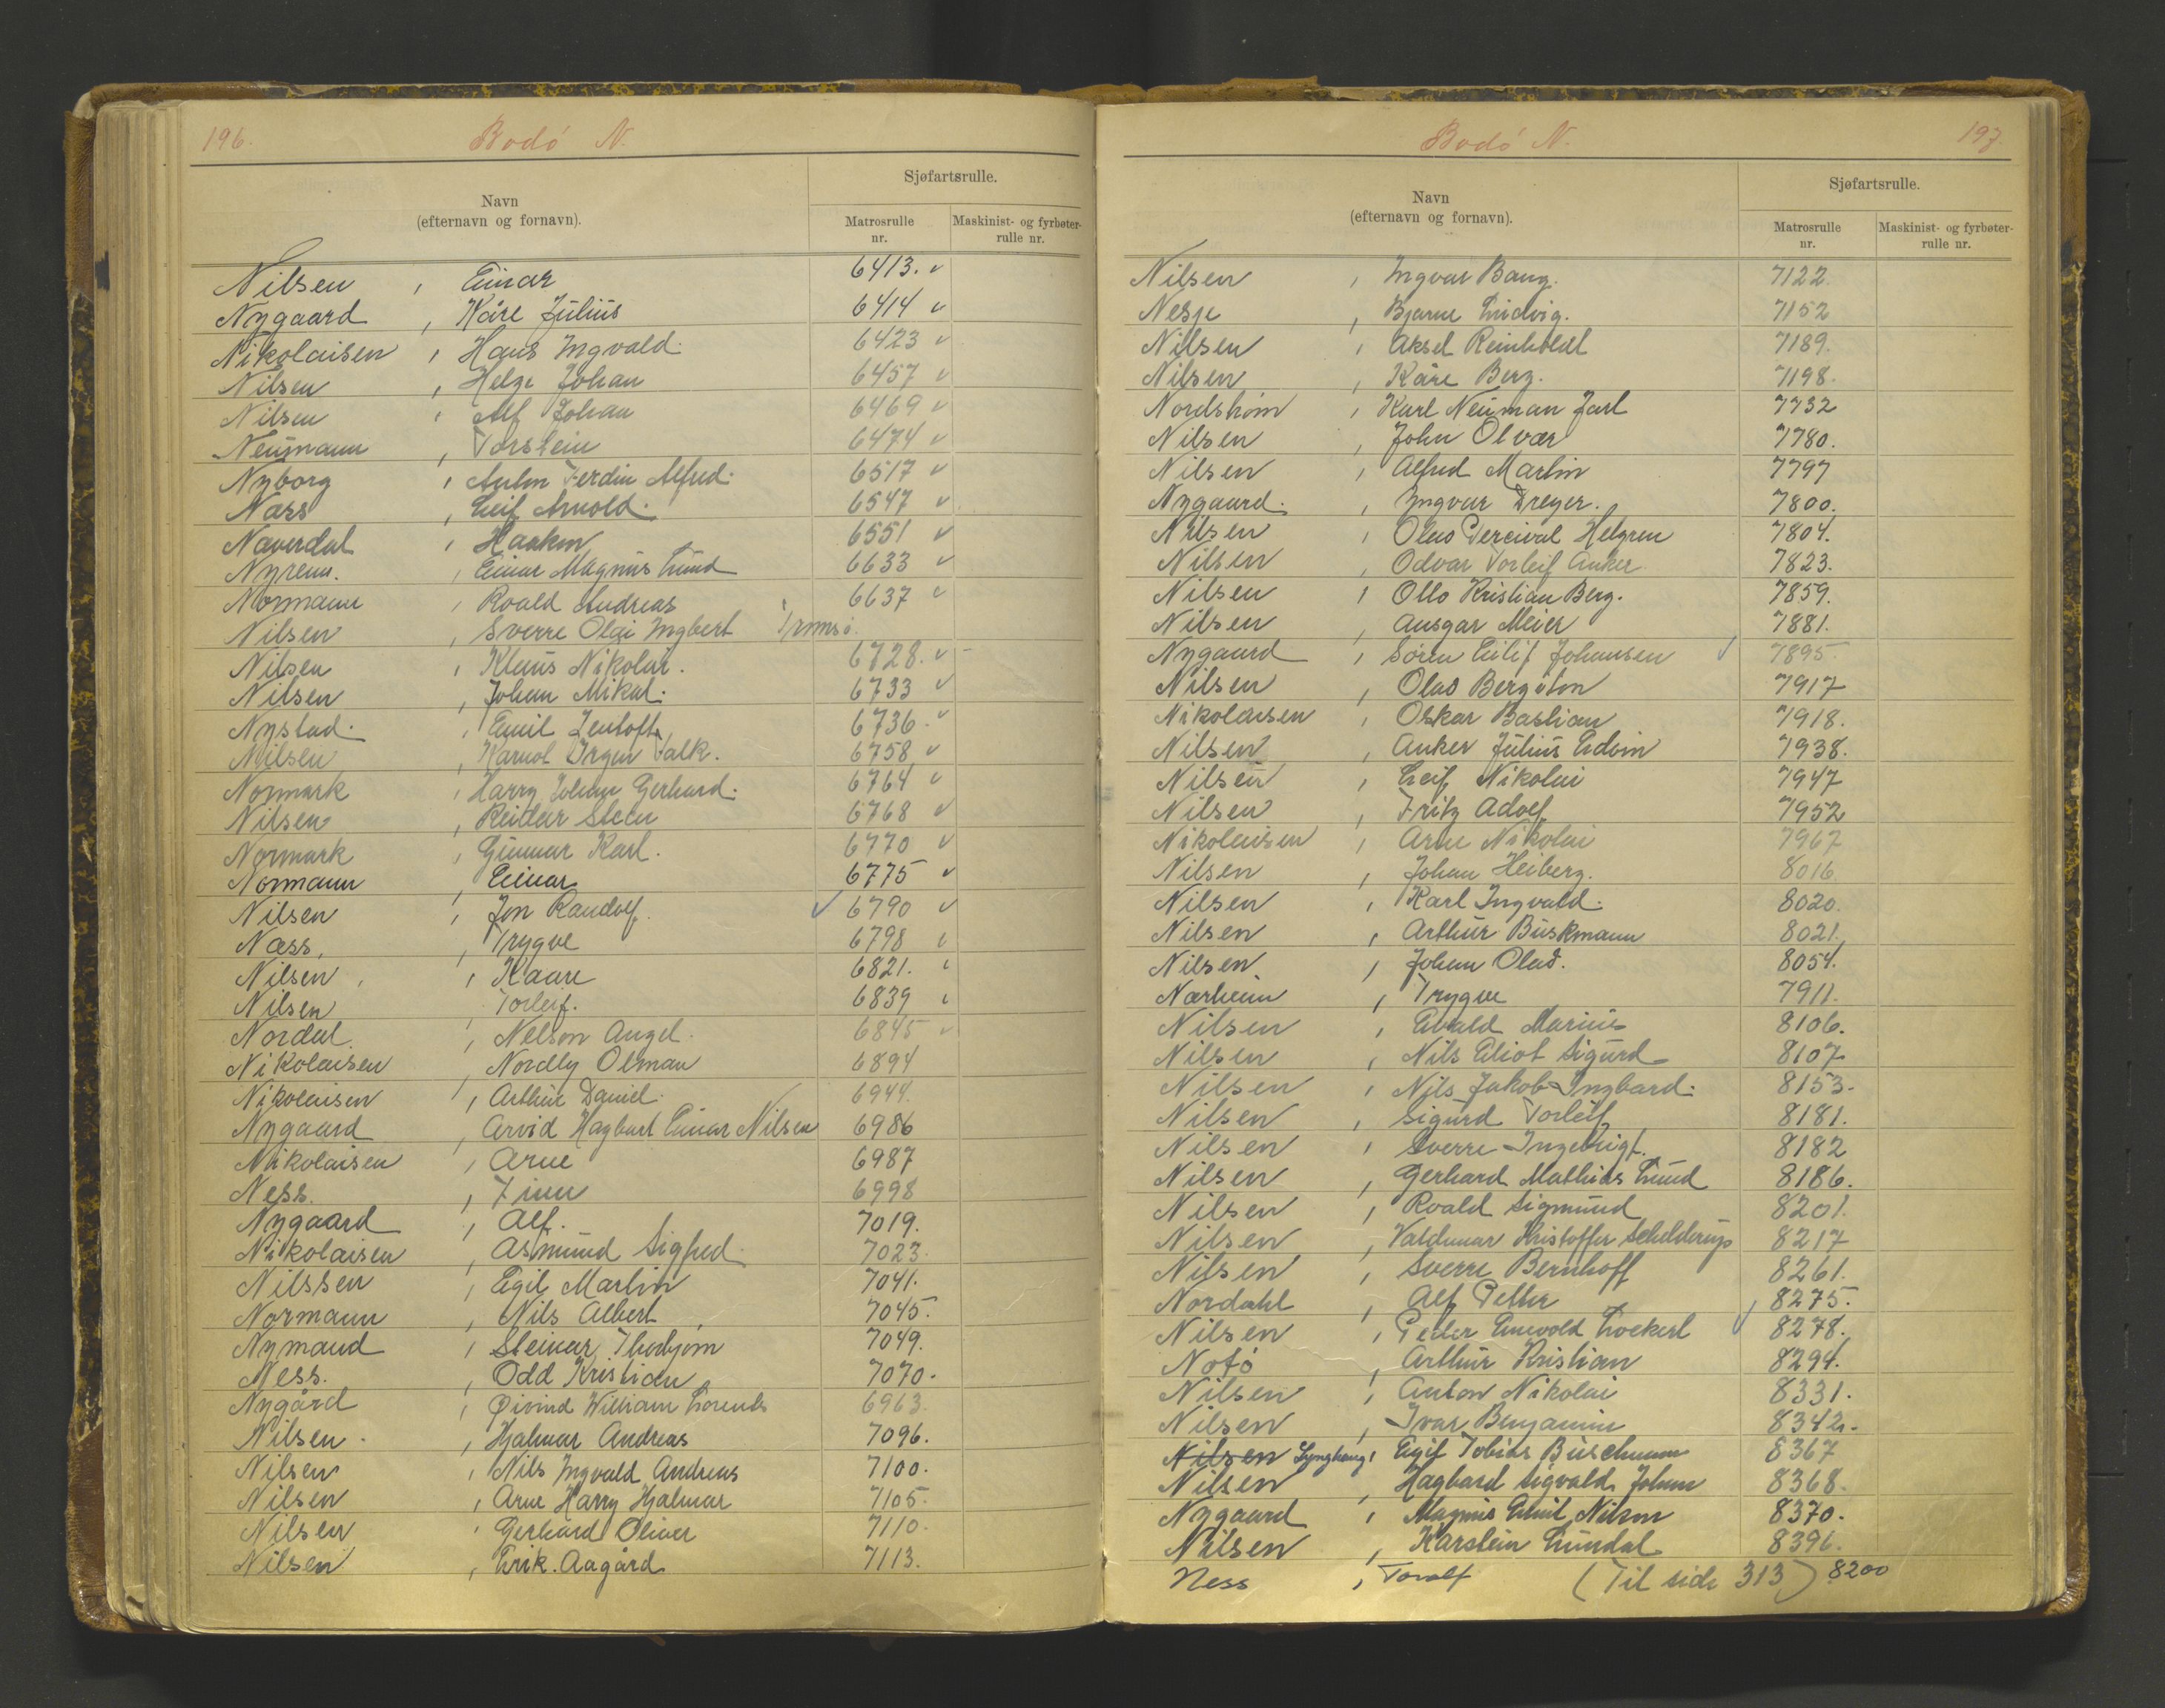 196.
Bodó N.
Navn
(efternavn og fornavn).
Sjøfartsrulle.
Matrosrulle nr.
Maskinist- og fyrbøter-rulle nr.
Nilsen , Einar 6413. v
Nygaard , Kåre Julius 6414 v
Nikolaisen , Hans Ingvald. 6423 v
Nilsen , Helge Johan 6457 v
Nilsen , Alf Johan 6469 v
Neumann , Torstein 6474 v
Nyborg , Anton Ferdin Alfred. 6517 v
Næss , Leif Arnold. 6547 v
Naverdal , Haakon 6551 v
, Einar Magnus Lund 6633 v
Normann , Roald Andreas 6637 v
Nilsen , Sverre Olai Ingbert Tromsø.
Nilsen , Klaus Nikolai. 6728. v -
Nilsen , Johan Mikal. 6733 v
Nystad. , Emil Zentoft 6736. v
Nilsen , Falk. 6758 v
Normark , Harry Johan Gerhard. 6764 v
Nilsen , Reidar Steen 6768 v
Normark , Gunnar Karl. 6770 v
Normann , Einar 6775 v
Nilsen , Jon Randolf. v 6790 v
Næss, , Trygve 6798 v
Nilsen , Kaare 6821. v
Nilsen , Torleif. 6839 v
Nordal. , Nelson Angel. 6845 v
Nikolaisen , Nordly Olman 6894
Nikolaisen , Arthur Daniel. 6944.
Nygaard , Arvid Hagbart Einar Nilsen 6986
Nikolaisen , Arne 6987
Ness. , Finn 6998
Nygaard , Alf. 7019.
Nikolaisen , Asmund Sigfred. 7023.
Nilssen , Egil Martin 7041.
Normann , Nils Albert 7045.
Nymand , Steinar Thorbjørn 7049.
Ness. , Odd Kristian 7070.
Nygård , Øivind William Lorents 6963.
Nilsen. , Hjalmar Andreas 7096.
Nilsen , Nils Ingvald Andreas 7100.
Nilsen , Arne Harry Hjalmar 7105.
Nilsen , Gerhard Oliver 7110.
Nilsen , Erik. Aagård 7113.
Bodó N.
197
Navn
(efternavn og fornavn).
Sjøfartsrulle.
Matrosrulle nr.
Maskinist- og fyrbøter-rulle nr.
Nilsen , Ingvar Bang. 7122.
Nesje , Bjarne Ludvig. 7152
Nilsen , Aksel Reinholdt 7189.
Nilsen , Kåre Berg. 7198.
Nordstrøm , Karl Neuman Jarl 7732
Nilsen , John Olvar 7780.
Nilsen , Alfred Martin 7797
Nygaard. , Ingvar Dreyer. 7800.
Nilsen , Olaus Percival Helgren 7804.
Nilsen , Odvar Torleif Anker 7823.
Nilsen , Otto Kristian Berg. 7859.
Nilsen , Ansgar Meier 7881.
Nygaard , Søren Eilif Johansen v 7895.
Nilsen , Olav Bergiton 7917
Nikolaisen , Oskar Bastian 7918.
Nilsen , Anker Julius Edvin 7938.
Nilsen , Leif Nikolai 7947
Nilsen , Fritz Adolf 7952
Nikolaisen , Arne Nikolai 7967
Nilsen , Johan Heiberg. 8016
Nilsen , Karl Ingvald. 8020.
Nilsen , Arthur Buskmann 8021.
Nilsen , Johan Olav. 8054.
Nærheim , Trygve 7911.
Nilsen , Evald Marius 8106.
Nilsen , Nils Eliot Sigurd 8107
Nilsen , Nils Jakob Ingbard. 8153.
Nilsen , Sigurd Torleif 8181.
Nilsen , Sverre Ingebrigt. 8182
Nilsen , Gerhard Mathias Lund 8186.
Nilsen , Roald Sigmund 8201.
Nilsen , Valdemar Kristoffer Schelderup 8217
Nilsen , Sverre Bernhoff 8261.
Nordahl , Alf Petter 8275.
Nilsen , Peder Enevold Lockert v 8278.
Notó , Arthur Kristian 8294.
Nilsen , Anton Nikolai 8331.
Nilsen , Ivar Benjamin 8342.
Nilsen Lynghaug , Egil Tobias Buschmann 8367
Nilsen , Hagbard Sigvald Johan 8368.
Nygaard , Magnus Emil Nilsen 8370.
Nilsen , Karstein Lundal 8396.
Ness , Toralf (Til side 313) 8200